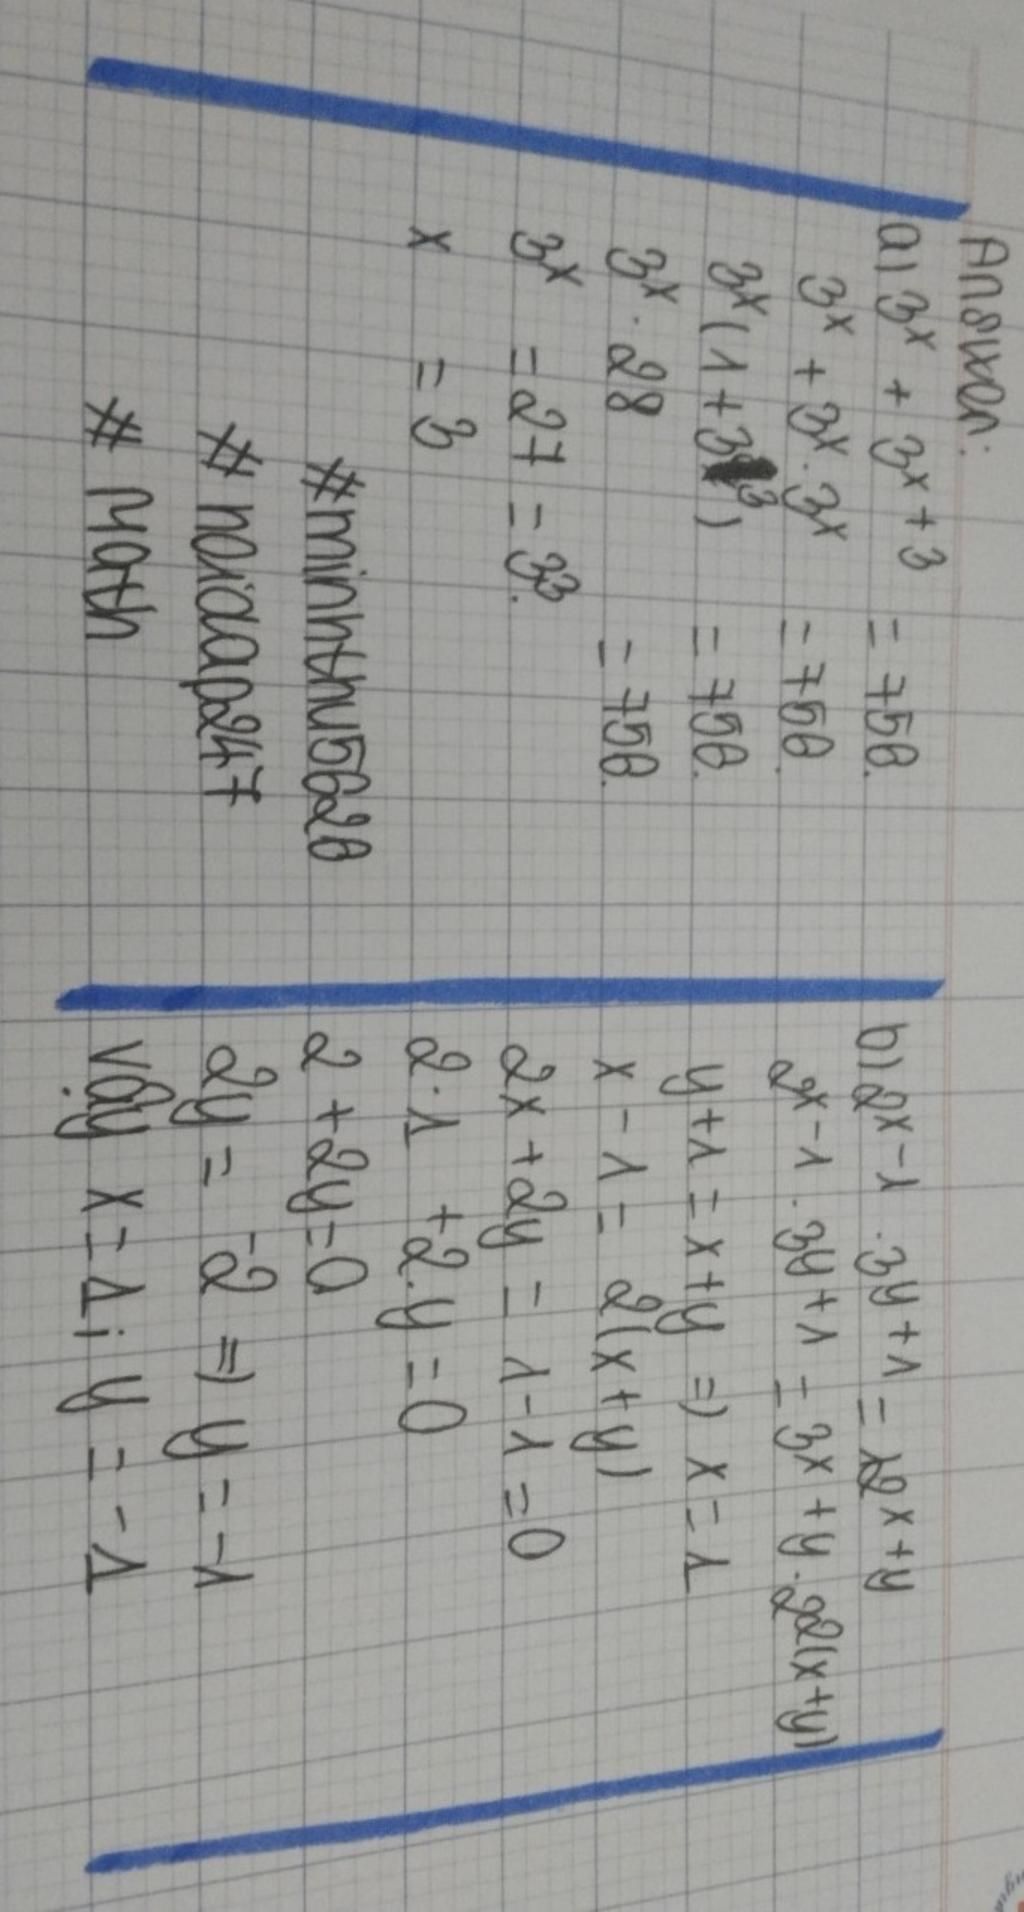 Answer:
a) 3x + 3x+3 = 758.
3x + 3x.3x = 758.
3x(1+33) = 758.
3x.28 = 758.
3x = 27 = 33.
x = 3
#minhthu5628
#hoidap247
# Math
b) 2x-1.3y+1 = 12x+y
2x-1.3y+1 = 3x+y.22(x+y)
y+1 = x+y => x = 1
x-1 = 2(x+y)
2x+2y = 1-1 = 0
2.1 +2.y = 0
2 + 2y = 0
2y = -2 => y = -1
Vậy x = 1; y = -1